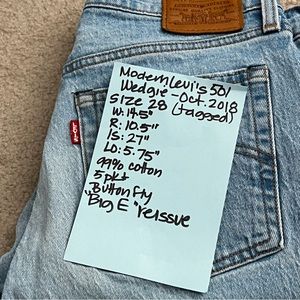 Modern Levi's 501
Wedgie - Oct. 2018
Size 28 (tagged)
W: 14.5"
R: 10.5"
IS: 27"
LO: 5.75"
99% cotton
5 pkt
Button Fly
"Big E" reissue